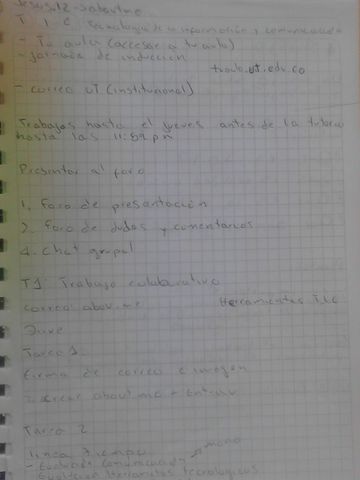 T I C Tecnología de la información y comunicación
- Tu aula (accesar a tu aula)
- Jornada de inducción
tuaula.ut.edu.co
- correo UT (institucional)
Trabajos hasta el jueves antes de la tutoria
hasta las 11:59 pm
Presentar al foro
1. Foro de presentación
2. Foro de dudas y comentarios
4. Chat grupal
T1: Trabajo colaborativo
correo about.me Herramientas TIC
Tarea 1.
Firma de correo e imagen
2. crear about me +
Tarea 2
linea tiempo
- Evolución comunicación
- Evolución Herramientas tecnologicas